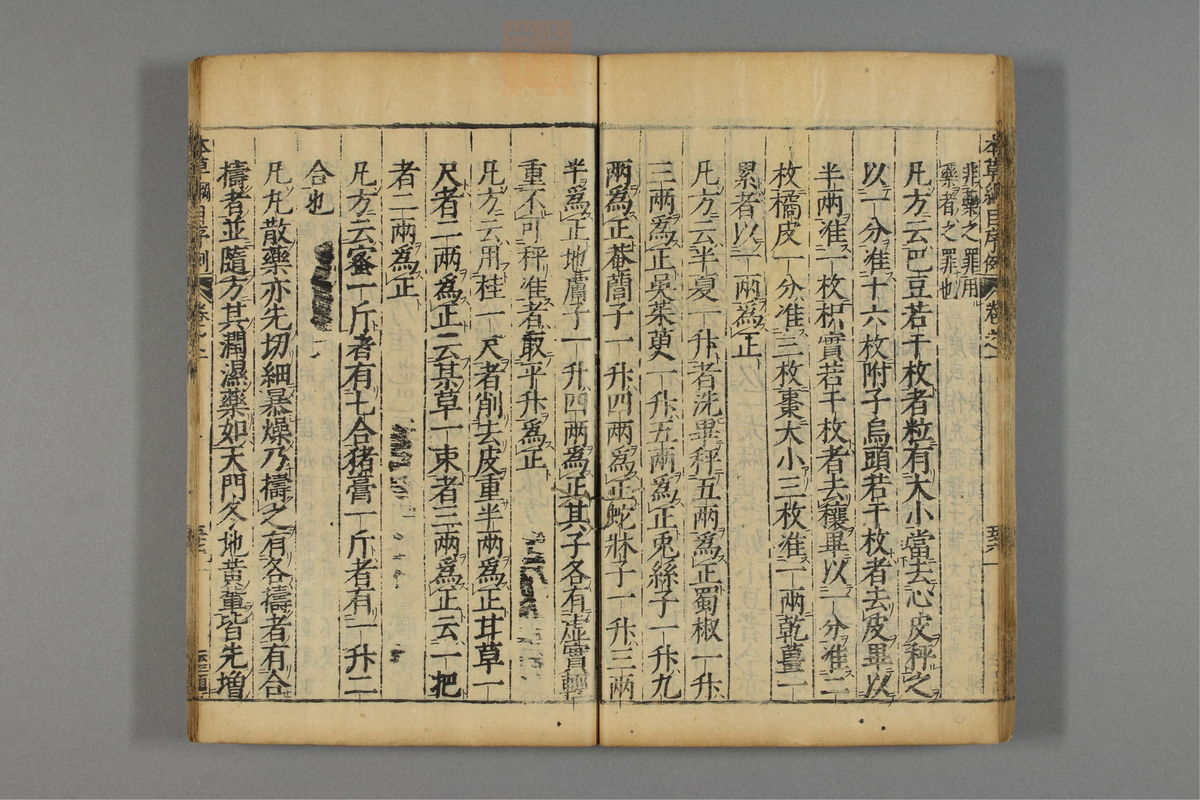 本草綱目序例 卷之一
非藥之罪用
藥者之罪也
凡方云巴豆若干枚者粒有大小當去心皮秤之
以一分准十六枚附子烏頭若干枚者去皮畢以
半兩准一枚枳實若干枚者去穰畢以一分准二
枚橘皮一分准三枚棗大小三枚准一兩乾薑一
累者以一兩爲正
凡方云半夏一升者洗畢秤五兩爲正蜀椒一升
三兩爲正吳茱萸一升五兩爲正兎絲子一升九
兩爲正菴䕡子一升四兩爲正蛇牀子一升三兩
半爲正地膚子一升四兩爲正其子各有虛實輕
重不可秤准者取平升爲正
凡方云用桂一尺者削去皮重半兩爲正甘草一
尺者二兩爲正云某草一束者三兩爲正云一把
者二兩爲正
凡方云蜜一斤者有七合猪膏一斤者有一升二
合也
凡凡散藥亦先切細暴燥乃擣之有各擣者有合
擣者並隨方其潤濕藥如天門冬地黃輩皆先增
本草綱目序例 卷之一